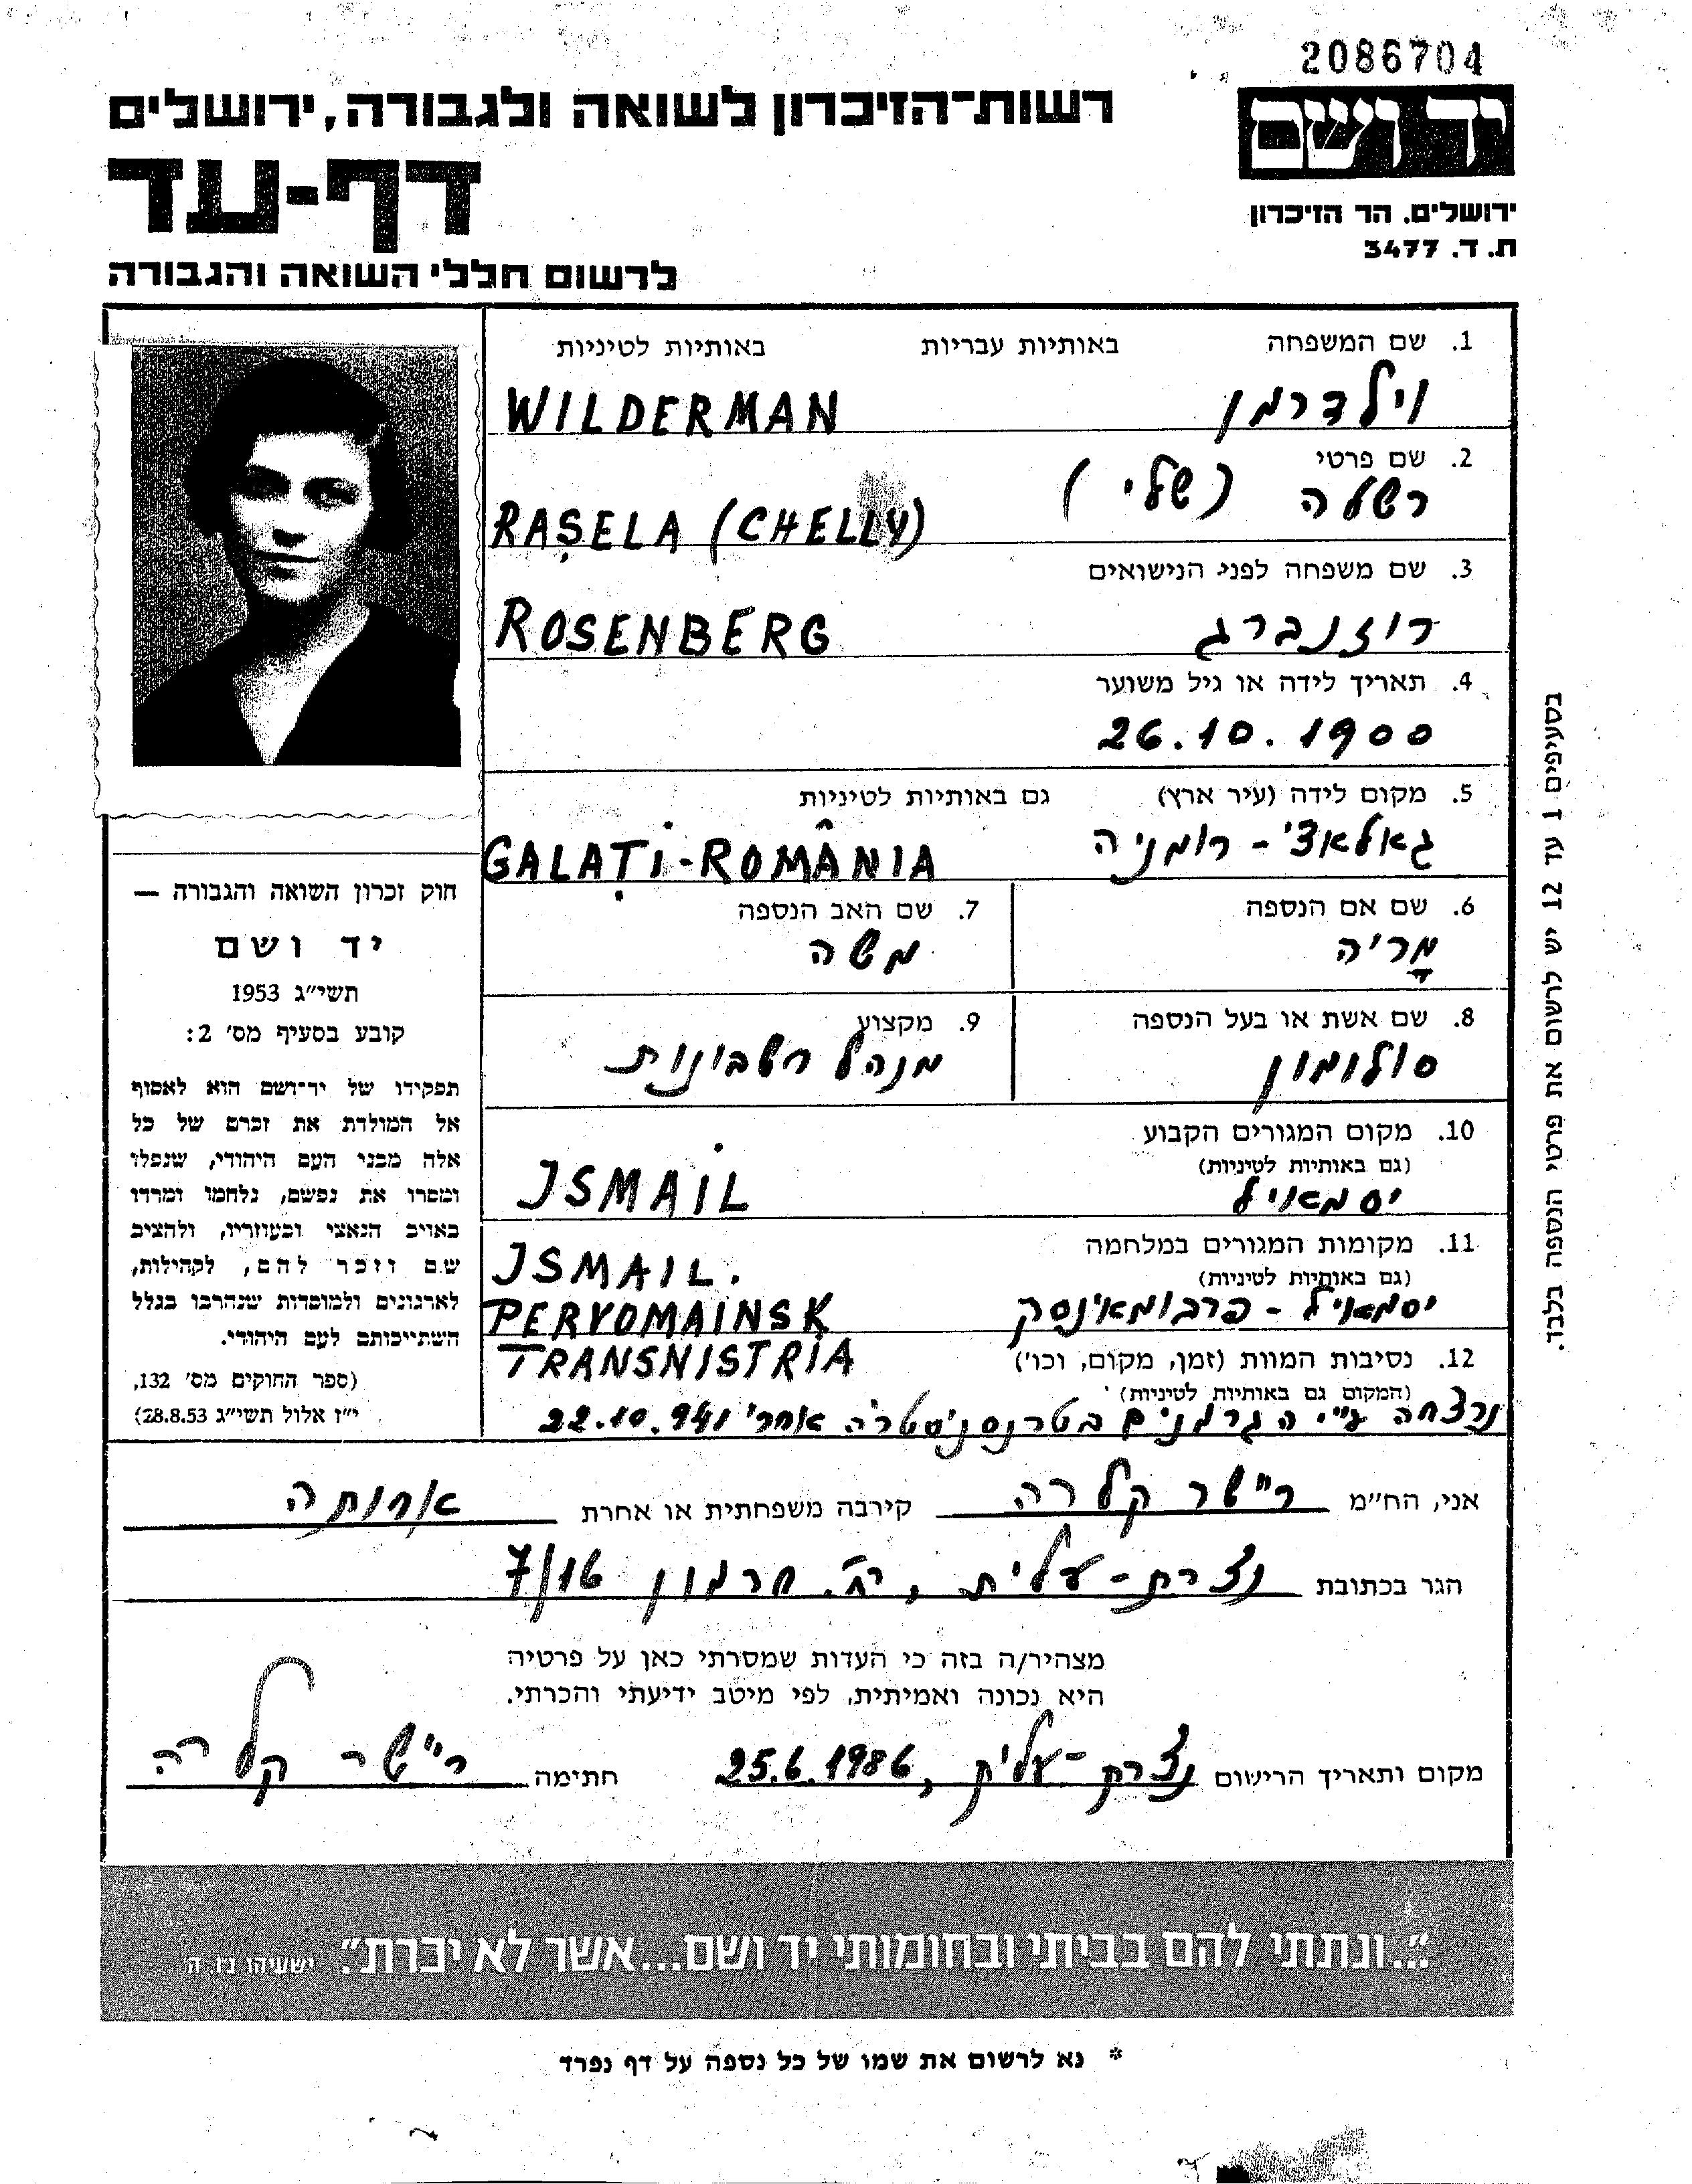 2086704
יד ושם
רשות־הזיכרון לשואה ולגבורה, ירושלים
דף-עד
ירושלים, הר הזיכרון
ת. ד. 3477
לרשום חללי השואה והגבורה
1. שם המשפחה באותיות עבריות באותיות לטיניות
וילדרמן WILDERMAN
2. שם פרטי
רשלה (שלי) RAȘELA (CHELLY)
3. שם משפחה לפני הנישואים
רוזנברג ROSENBERG
4. תאריך לידה או גיל משוער
26.10.1900
5. מקום לידה (עיר ארץ) גם באותיות לטיניות
גאלאצי - רומניה GALAȚi-ROMÂNIA
6. שם אם הנספה 7. שם האב הנספה
מָריה משה
8. שם אשת או בעל הנספה 9. מקצוע
סולומון מנהל חשבונות
10. מקום המגורים הקבוע
(גם באותיות לטיניות)
יסמאויל JSMAiL
11. מקומות המגורים במלחמה
(גם באותיות לטיניות) JSMAIL.
יסמאויל - פרבומאינסק PERVOMAINSK
12. נסיבות המוות (זמן, מקום, וכו') TRANSNISTRIA
(המקום גם באותיות לטיניות)
נרצחה ע"י הגרמנים בטרנסניסטריה אחרי 22.10.941
חוק זכרון השואה והגבורה —
יד ושם
תשי״ג 1953
קובע בסעיף מס׳ 2:
תפקידו של יד־ושם הוא לאסוף
אל המולדת את זכרם של כל
אלה מבני העם היהודי, שנפלו
ומסרו את נפשם, נלחמו ומרדו
באויב הנאצי ובעוזריו, ולהציב
שם וזכר להם, לקהילות,
לארגונים ולמוסדות שנהרבו בגלל
השתייכותם לעם היהודי.
(ספר החוקים מס׳ 132,
י״ז אלול תשי״ג 28.8.53)
בסעיפים 1 עד 12 יש לרשום את פרטי הנספה בלבד.
אני, הח״מ ריישר קלרה קירבה משפחתית או אחרת אחותה
הגר בכתובת נצרת-עלית, חרמון 7/16
מצהיר/ה בזה כי העדות שמסרתי כאן על פרטיה
היא נכונה ואמיתית, לפי מיטב ידיעתי והכרתי.
מקום ותאריך הרישום נצרת-עלית, 25.6.1986 חתימה ריישר קלרה
״...ונתתי להם בביתי ובחומותי יד ושם...אשר לא יכרת״. ישעיהו נ״ו, ה׳
* נא לרשום את שמו של כל נספה על דף נפרד